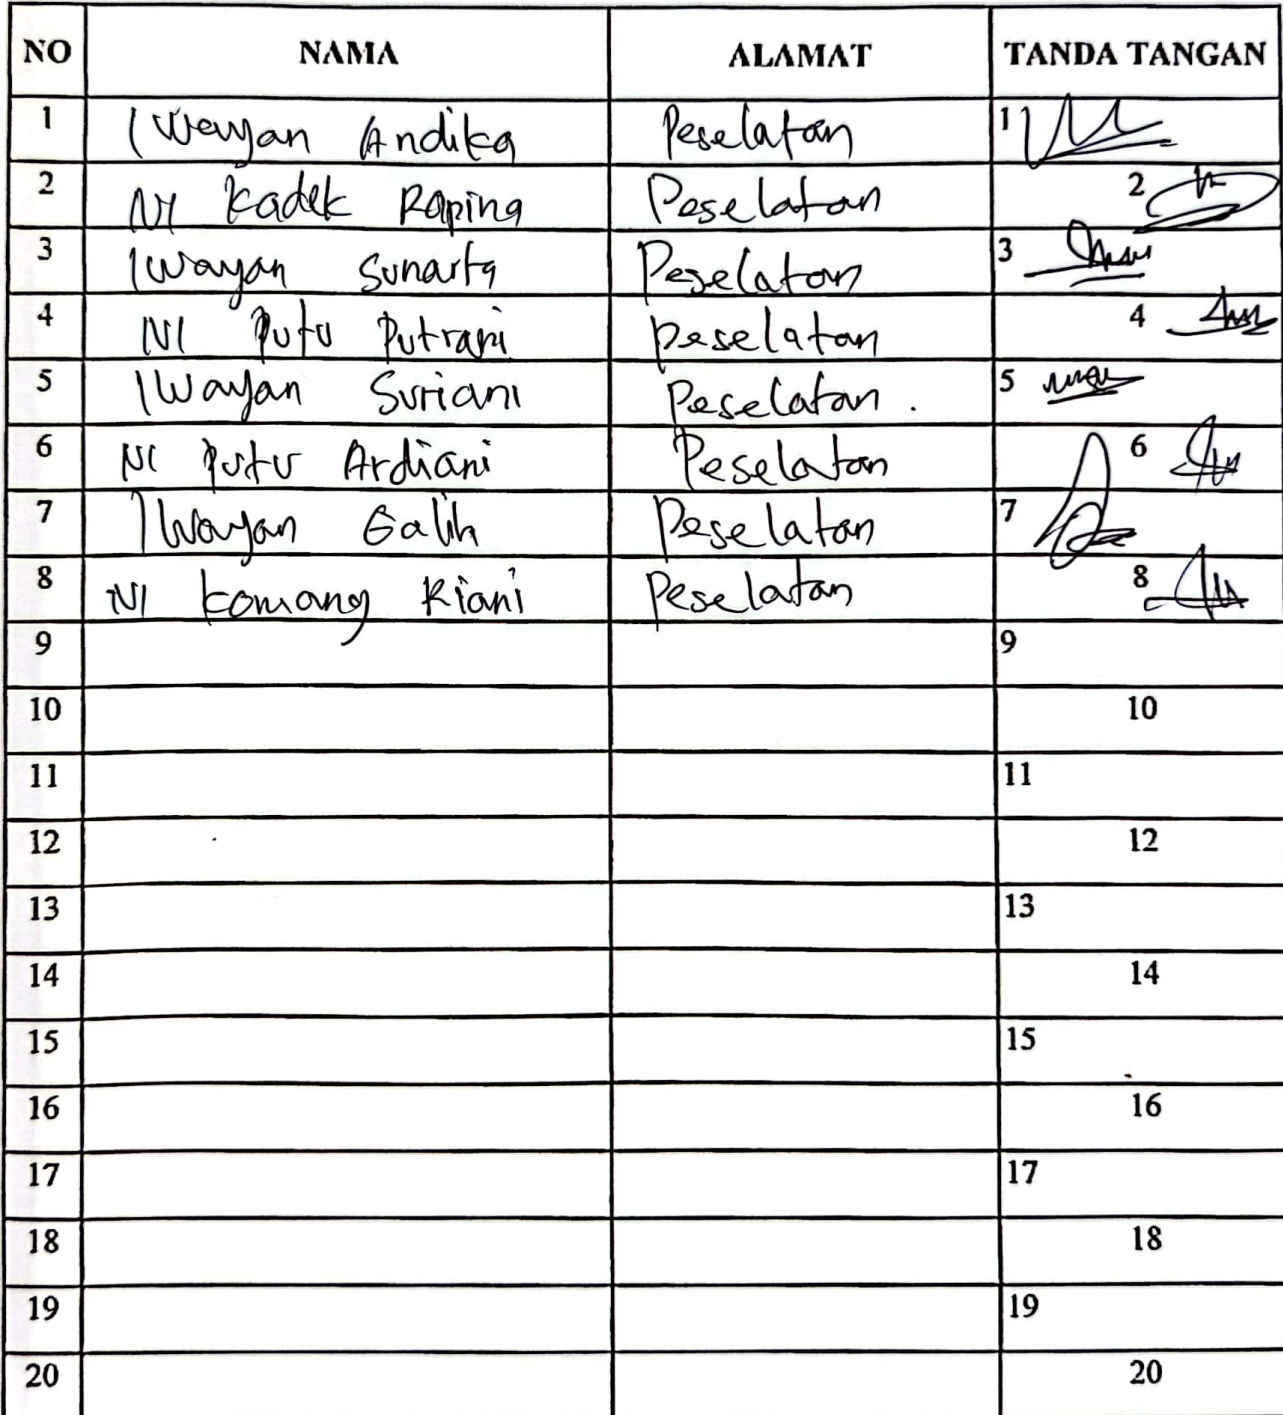 NO NAMA ALAMAT TANDA TANGAN
1 I Wayan Andika Peselatan 1
2 NI Kadek Rapina Peselatan 2
3 I Wayan Sunarta Peselatan 3
4 NI Putu Putrani Peselatan 4
5 I Wayan Suriani Peselatan . 5
6 NI Putu Ardiani Peselatan 6
7 I Wayan Galih Peselatan 7
8 NI Komang Riani Peselatan 8
9 9
10 10
11 11
12 12
13 13
14 14
15 15
16 16
17 17
18 18
19 19
20 20